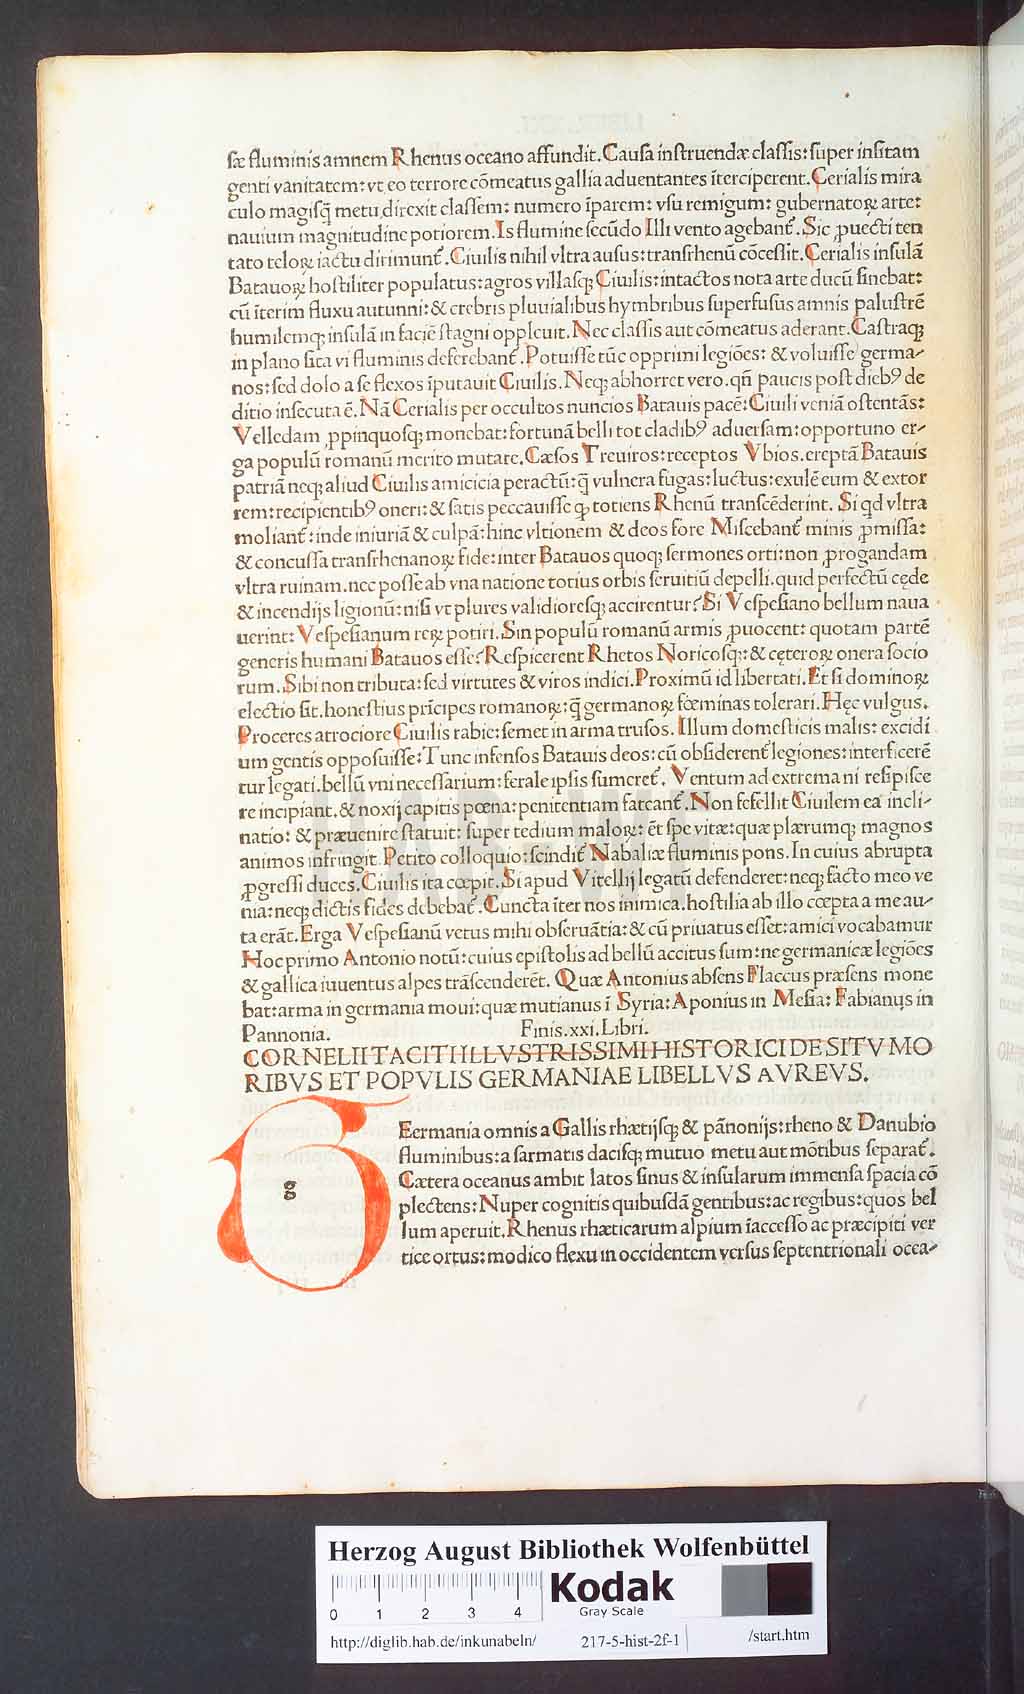 sæ fluminis amnem Rhenus oceano affundit. Causa instruendæ classis: super insitam
genti vanitatem: vt eo terrore cōmeatus gallia aduentantes īterciperent. Cerialis mira
culo magisq̃ metu direxit classem: numero īparem: vsu remigum: gubernatoꝝ arte:
nauium magnitudine potiorem. Is flumine secūdo Illi vento agebant᷑. Sic ꝓuecti ten
tato teloꝝ iactu dirimunt᷑. Ciuilis nihil vltra ausus: transrhenū cōcessit. Cerialis insulā
Batauoꝝ hostiliter populatus: agros villasqꝫ Ciuilis: intactos nota arte ducū sinebat:
cū īterim fluxu autunni: & crebris pluuialibus hymbribus superfusus amnis palustrē
humilemqꝫ insulā in faciē stagni oppleuit. Nec classis aut cōmeatus aderant. Castraqꝫ
in plano sita vi fluminis deferebant᷑. Potuisse tūc opprimi legiōes: & voluisse germa-
nos: sed dolo a se flexos īputauit Ciuilis. Neqꝫ abhorret vero. qñ paucis post diebꝰ de
ditio insecuta ē. Nā Cerialis per occultos nuncios Batauis pacē: Ciuili veniā ostentās:
Velledam ꝓpinquosqꝫ monebat: fortunā belli tot cladibꝰ aduersam: opportuno er-
ga populū romanū merito mutare. Cæsos Treuiros: receptos Vbios. ereptā Batauis
patriā neqꝫ aliud Ciuilis amicicia peractū: q̃ vulnera fugas: luctus: exulē eum & extor
rem: recipientibꝰ oneri: & satis peccauisse ꝙ totiens Rhenū transcēderint. Si qd vltra
moliant᷑: inde iniuriā & culpā: hinc vltionem & deos fore Miscebant᷑ minis ꝓmissa:
& concussa transrhenanoꝝ fide: inter Batauos quoqꝫ sermones orti: non ꝓrogandam
vltra ruinam. nec posse ab vna natione totius orbis seruitiū depelli. quid perfectū cęde
& incendijs ligionū: nisi vt plures validioresqꝫ accirentur? Si Vespesiano bellum naua
uerint: Vespesianum reꝝ potiri. Sin populū romanū armis ꝓuocent: quotam partē
generis humani Batauos esse? Respicerent Rhetos Noricosqꝫ: & cęteroꝝ onera socio
rum. Sibi non tributa: sed virtutes & viros indici. Proximū id libertati. Et si dominoꝝ
electio sit. honestius prīcipes romanoꝝ: q̃ germanoꝝ fœminas tolerari. Hęc vulgus.
Proceres atrociore Ciuilis rabie: semet in arma trusos. Illum domesticis malis: excidi
um gentis opposuisse: Tunc infensos Batauis deos: cū obsiderent᷑ legiones: interficerē
tur legati. bellū vni necessarium: ferale ipsis sumeret᷑. Ventum ad extrema ni resipisce
re incipiant. & noxij capitis pœna: penitentiam fateant᷑. Non fefellit Ciuilem ea incli-
natio: & præuenire statuit: super tedium maloꝝ: ēt spe vitæ: quæ plærumqꝫ magnos
animos infringit. Petito colloquio: scindit᷑ Nabaliæ fluminis pons. In cuius abrupta
ꝓgressi duces. Ciuilis ita cœpit. Si apud Vitellij legatū defenderet: neqꝫ facto meo ve
nia: neqꝫ dictis fides debebat᷑. Cuncta īter nos inimica. hostilia ab illo cœpta a me au-
ta erāt. Erga Vespesianū vetus mihi obseruātia: & cū priuatus esset: amici vocabamur
Hoc primo Antonio notū: cuius epistolis ad bellū accitus sum: ne germanicæ legiōes
& gallica iuuentus alpes trāscenderēt. Quæ Antonius absens Flaccus præsens mone
bat: arma in germania moui: quæ mutianus ī Syria: Aponius in Mesia: Fabianus in
Pannonia. Finis. xxi. Libri.
CORNELII TACITI ILLVSTRISSIMI HISTORICI DE SITV MO
RIBVS ET POPVLIS GERMANIAE LIBELLVS AVREVS.
g
Eermania omnis a Gallis rhætijsqꝫ & pānonijs: rheno & Danubio
fluminibus: a sarmatis dacisqꝫ mutuo metu aut mōtibus separat᷑.
Cætera oceanus ambit latos sinus & insularum immensa spacia cō
plectens: Nuper cognitis quibusdā gentibus: ac regibus: quos bel
lum aperuit. Rhenus rhæticarum alpium īaccesso ac præcipiti ver
tice ortus: modico flexu in occidentem versus septentrionali ocea-
HAB-WF
Herzog August Bibliothek Wolfenbüttel
0 1 2 3 4
Kodak
Gray Scale
http://diglib.hab.de/inkunabeln/ 217-5-hist-2f-1 /start.htm